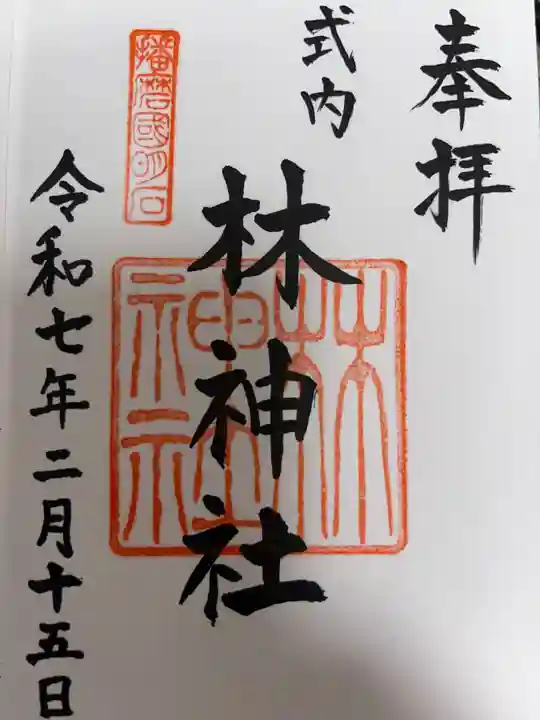 奉拝
式内
林神社
林神社
播磨國明石
令和七年二月十五日